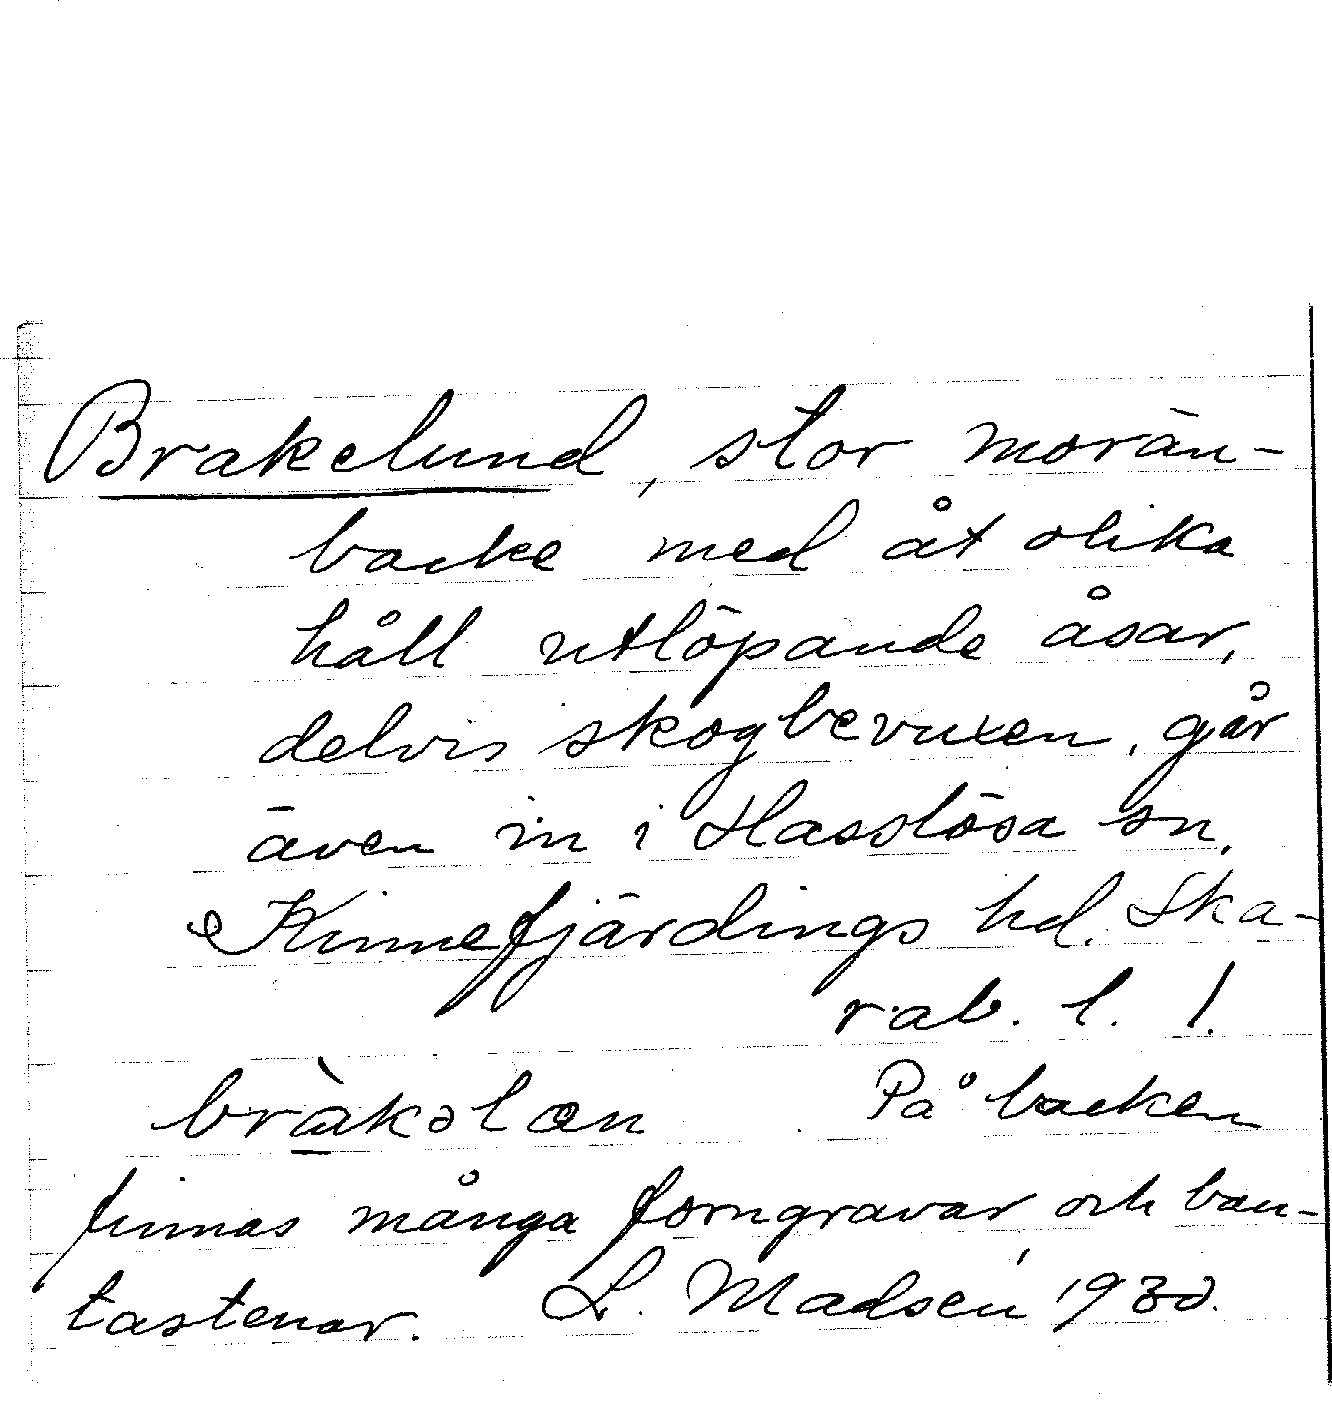 Brakelund, stor morän-
backe med åt olika
håll utlöpande åsar,
delvis skogbevuxen, går
även in i Hasslösa sn,
Kinnefjärdings hd. Ska-
rab. l. !
bràkəlæn På backen
finnas många forngravar och bau-
tastenar. L. Madsén 1930.